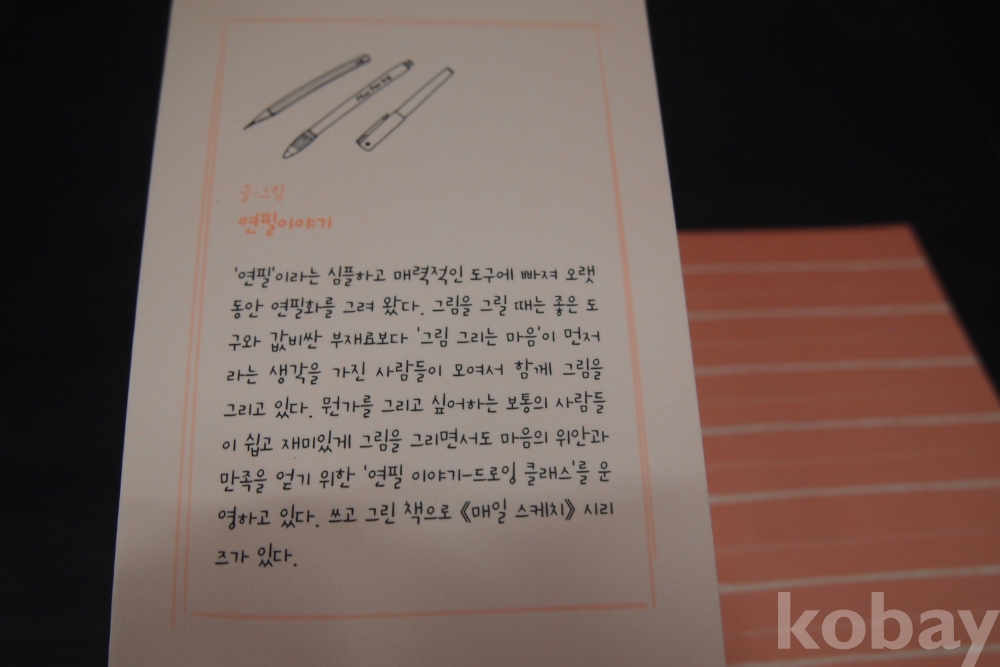 글·그림
연필이야기
'연필'이라는 심플하고 매력적인 도구에 빠져 오랫
동안 연필화를 그려 왔다. 그림을 그릴 때는 좋은 도
구와 값비싼 부재료보다 '그림 그리는 마음'이 먼저
라는 생각을 가진 사람들이 모여서 함께 그림을
그리고 있다. 뭔가를 그리고 싶어하는 보통의 사람들
이 쉽고 재미있게 그림을 그리면서도 마음의 위안과
만족을 얻기 위한 '연필 이야기-드로잉 클래스'를 운
영하고 있다. 쓰고 그린 책으로 《매일 스케치》 시리
즈가 있다.
kobay